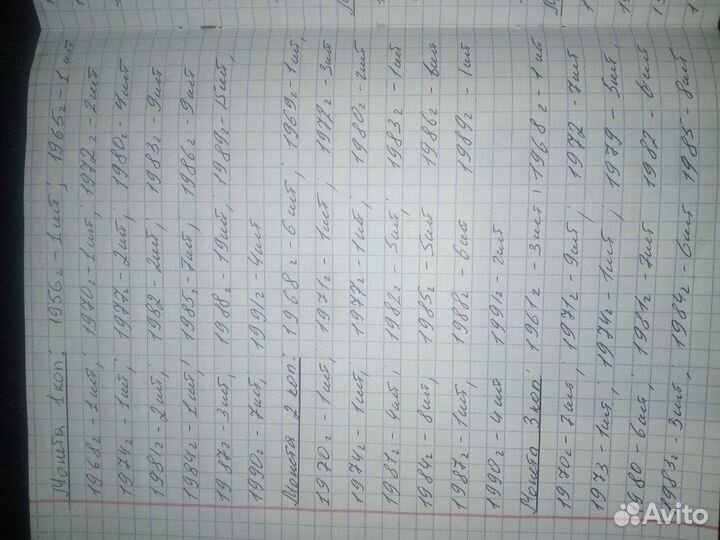 Монета 1 коп: 1956г - 1 шт; 1965г - 1 шт
1968г - 1 шт; 1970г - 1 шт; 1972г - 2 шт
1974г - 1 шт; 1977г - 2 шт; 1980г - 4 шт
1981г - 2 шт; 1982 - 2 шт; 1983г - 9 шт
1984г - 1 шт; 1985г - 7 шт; 1986г - 9 шт
1987г - 3 шт; 1988г - 19 шт; 1989г - 15 шт,
1990г - 7 шт, 1991г - 4 шт
Монета 2 коп: 1968г - 6 шт; 1969г - 1 шт,
1970г - 1 шт; 1971г - 1 шт; 1972г - 3 шт
1974г - 1 шт; 1977г - 1 шт, 1980г - 2 шт
1981г - 4 шт; 1982г - 5 шт; 1983г - 1 шт
1984г - 8 шт; 1985г - 5 шт 1986г - 6 шт
1987г - 1 шт, 1988г - 6 шт 1989г - 1 шт
1990г - 4 шт 1991г - 2 шт
Монета 3 коп: 1961г - 3 шт, 1968г - 1 шт
1970г - 7 шт, 1971г - 9 шт; 1972 - 7 шт
1973 - 1 шт; 1974г - 1 шт; 1979 - 5 шт,
1980 - 6 шт, 1981г - 7 шт 1982 - 6 шт
1983г - 3 шт, 1984г - 6 шт 1985 - 8 шт
Avito